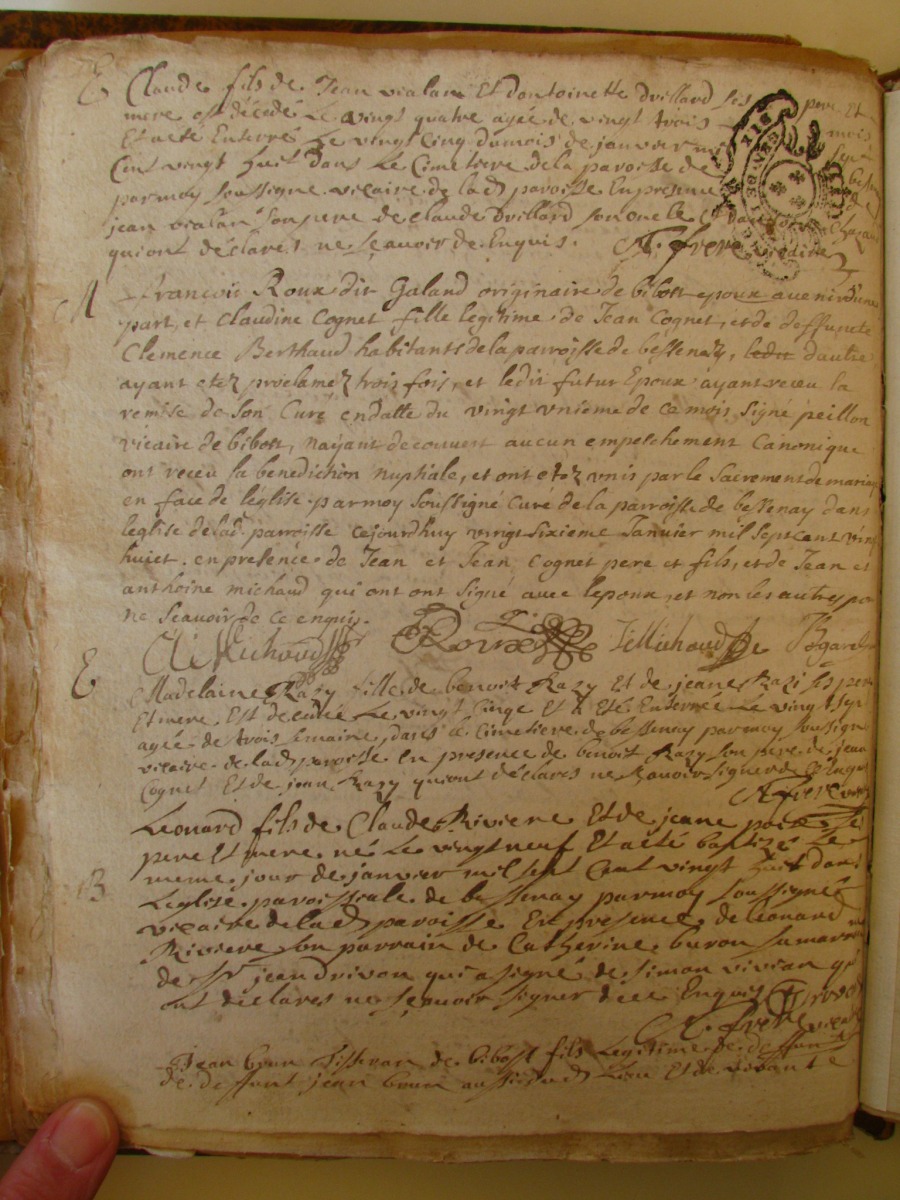 E Claude fils de Jean vialan Et dantoinette drillard ses pere Et
mere est décédé Le vingt quatre agée de vingt trois mois
Et aeté Enterré Le vingt Cinq dumois de janvier mil sept
Cent vingt huit dans Le Cimetiere dela paroisse de besse
parmoy soussigne vicaire de lad paroisse En presence de
jean vialan son pere de Claude Drillard son oncle Et
quiont déclarés ne Sçavoir de Enquis. A. frere vicaire
M François Roux dit Galand originaire de bibost epoux avenir dune
part, et Claudine Cognet fille legitime de Jean Cognet, et de deffuncte
Clemence Berthaud habitants de la parroisse de bessenay, dautre
ayant etez proclamez trois fois, et ledit futur Epoux ayant receu la
remise de Son Curé en datte du vingt vnieme de ce mois Signé peillon
vicaire de bibost, nayant decouvert aucun empeschement Canonique
ont receu la benediction nuptiale, et ont etez vnis par le Sacrement de mariag
en face de leglise parmoy Soussigné Curé de la parroisse de bessenay dans
leglise de lad. parroisse cejourdhuy vingt Sixieme Janvier mil Sept cent vin
huict. en presence de Jean et Jean Cognet pere et fils, et de Jean et
anthoine michaud qui ont ont Signé avec lepoux, et non les autres po
ne Scavoir de ce enquis.
A Michoud Roux J Michoud
E Madelaine Razy fille de benoit Razy Et de jeane Razi ses pere
Et mere Est decedée Le vingt Cinq Et a Eté Enterrée Le vingt Sept
agée de trois Semaine, dans le Cimetiere de bessenay parmoy soussign
vicaire de lad paroisse En presence de benoit Razy son pere de jean
Cognet Et de jean Razy quiont déclarés ne Scavoir signer de Enquis
A frere vicaire
B Leonard fils de Claude Riviere Et de jeane
pere Et mere né Le vingt neuf Et aeté baptizé Le
meme jour de janvier mil sept Cent vingt huit dans
Leglise paroissiale de bessenay parmoy soussigné
vicaire de lad paroisse En presence de leonard
Riviere son parrain de Catherine buron sa marr
de Sr jean drivon qui a signé de simon vivian qui
ont declares ne Sçavoir signer de ce Enquis Drivon
A. frere vicaire
Jean brun tisseran de bibost fils Legitime de deffunt
de deffunt jean brun aussi dud Lieu Et de vivante